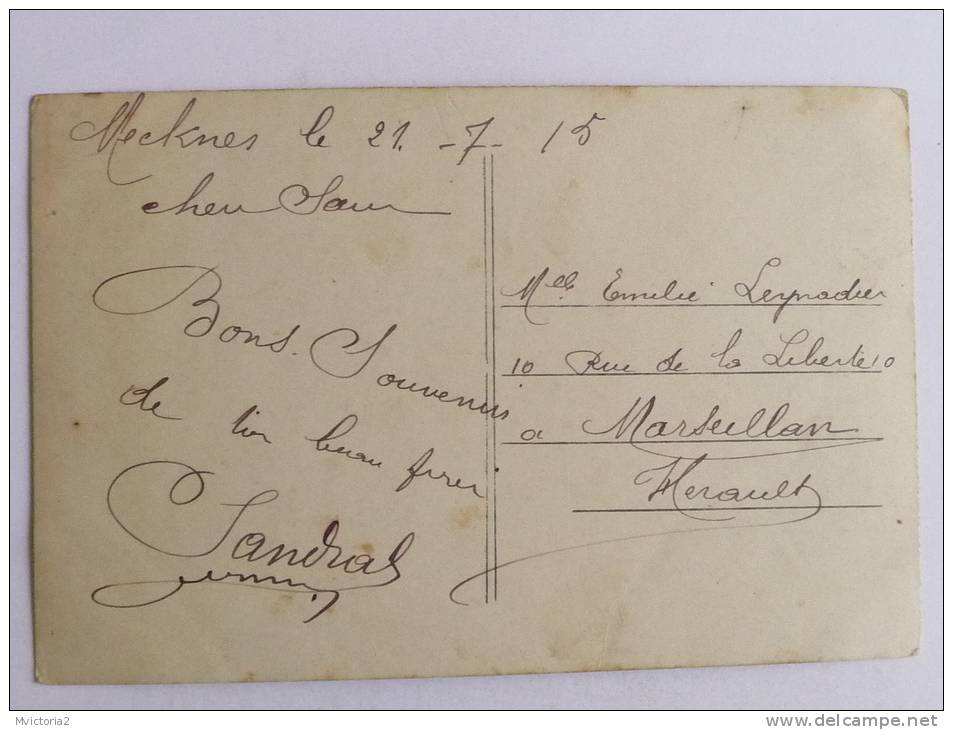 Mecknes le 21. -7- 15
Bons Souvenirs
de ton beau frere
Sandral
Melle Emilie Leynadier
10 Rue de la Liberte 10
a Marseillan
Herault
Mvictoria2
www.delcampe.net